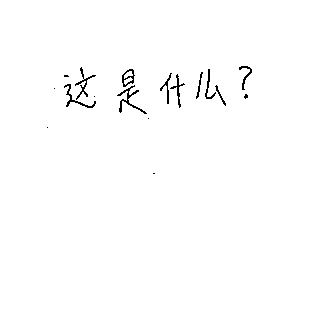 这是什么?